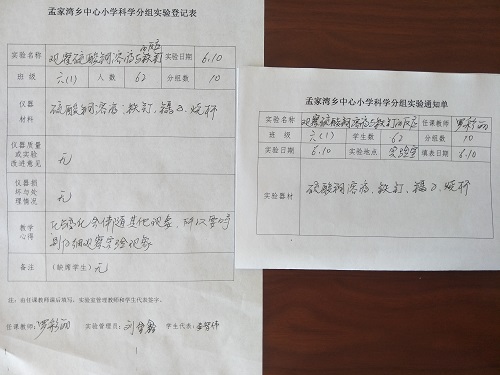 孟家湾乡中心小学科学分组实验登记表
实验名称 观察硫酸铜溶液与铁钉的反应 实验日期 6.10
班 级 六(1) 人 数 62 分组数 10
仪器
材料
硫酸铜溶液、铁钉、镊子、烧杯
仪器质量
或实验
改进意见
无
仪器损
坏与处
理情况
无
教学
心得
化学变化会伴随其他现象，所以要特
别仔细观察实验现象
备注 (缺席学生) 无
注：由任课教师课后填写，实验室管理教师和学生代表签字。
任课教师: 罗彩丽 实验管理员: 学生代表:
孟家湾乡中心小学科学分组实验通知单
实验名称 观察硫酸铜溶液与铁钉的反应 任课教师 罗彩丽
班 级 六(1) 学生数 62 分组数 10
实验日期 6.10 实验地点 实验室 填表日期 6.10
实验器材
硫酸铜溶液、铁钉、镊子、烧杯